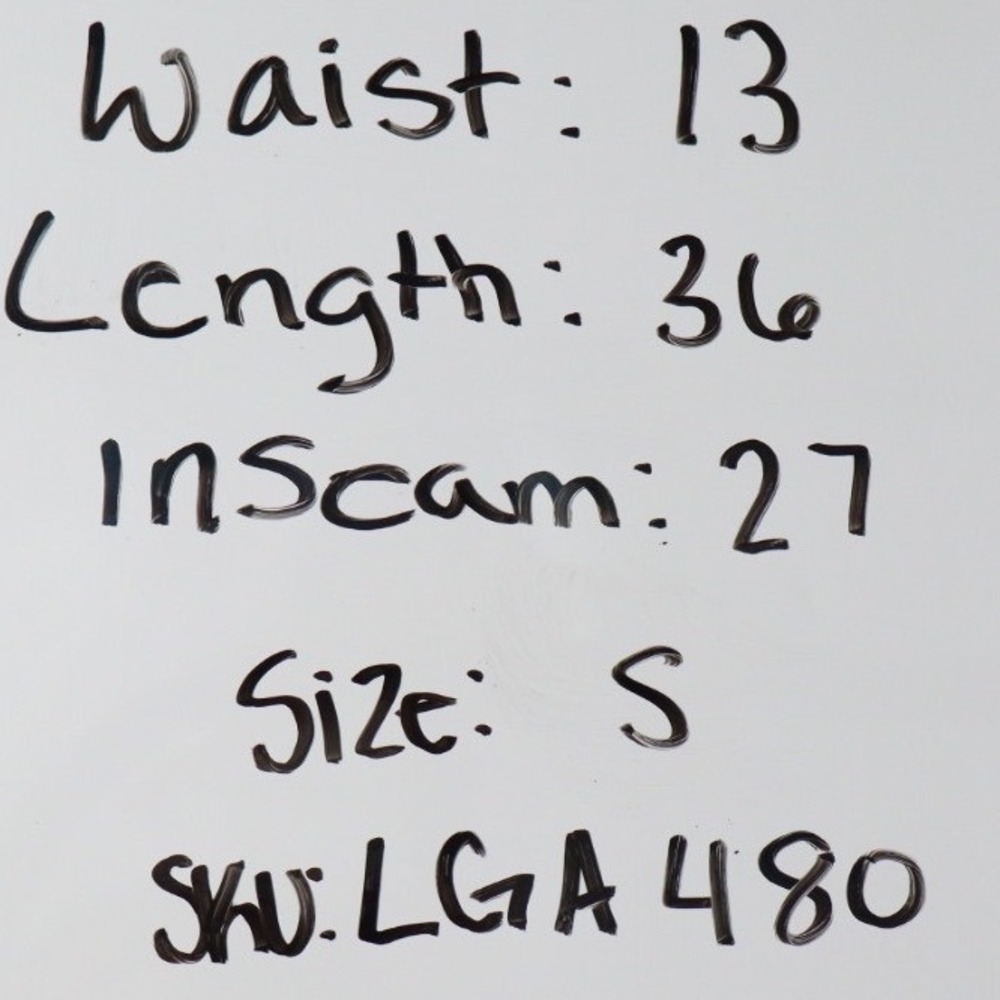 Waist: 13
Length: 36
Inseam: 27
Size: S
SKU: LGA 480